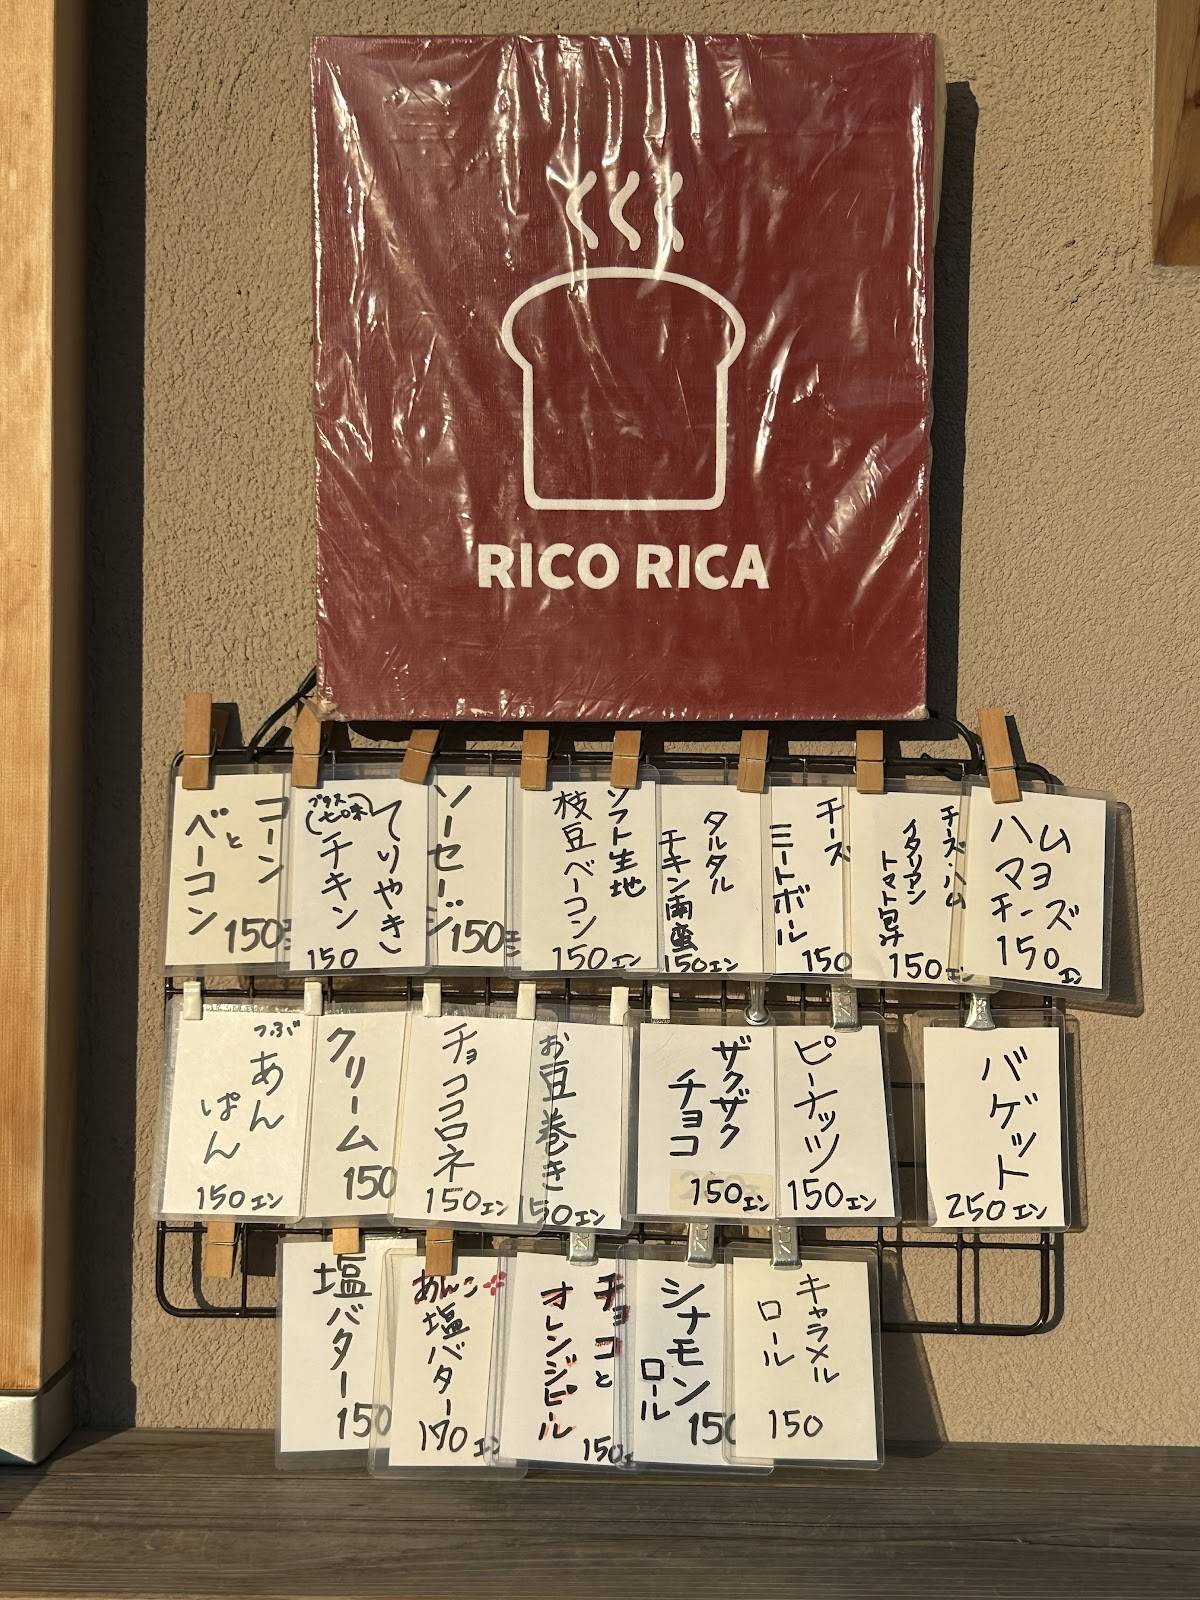 RICO RICA
コーン
と
ベーコン
150エン
てりやき
チキン
(プラス
七味)
150
ソーセージ
150エン
ソフト生地
枝豆ベーコン
150エン
タルタル
チキン南蛮
150エン
チーズ
ミートボール
150
チーズ・ハム
イタリアン
トマト包み
150エン
ハム
マヨ
チーズ
150エン
つぶ
あん
ぱん
150エン
クリーム
150
チョココロネ
150エン
お豆巻き
150エン
ザクザク
チョコ
150エン
ピーナッツ
150エン
バゲット
250エン
塩バター
150
あんこ
塩バター
170エン
チョコと
オレンジピール
150エン
シナモン
ロール
150
キャラメル
ロール
150